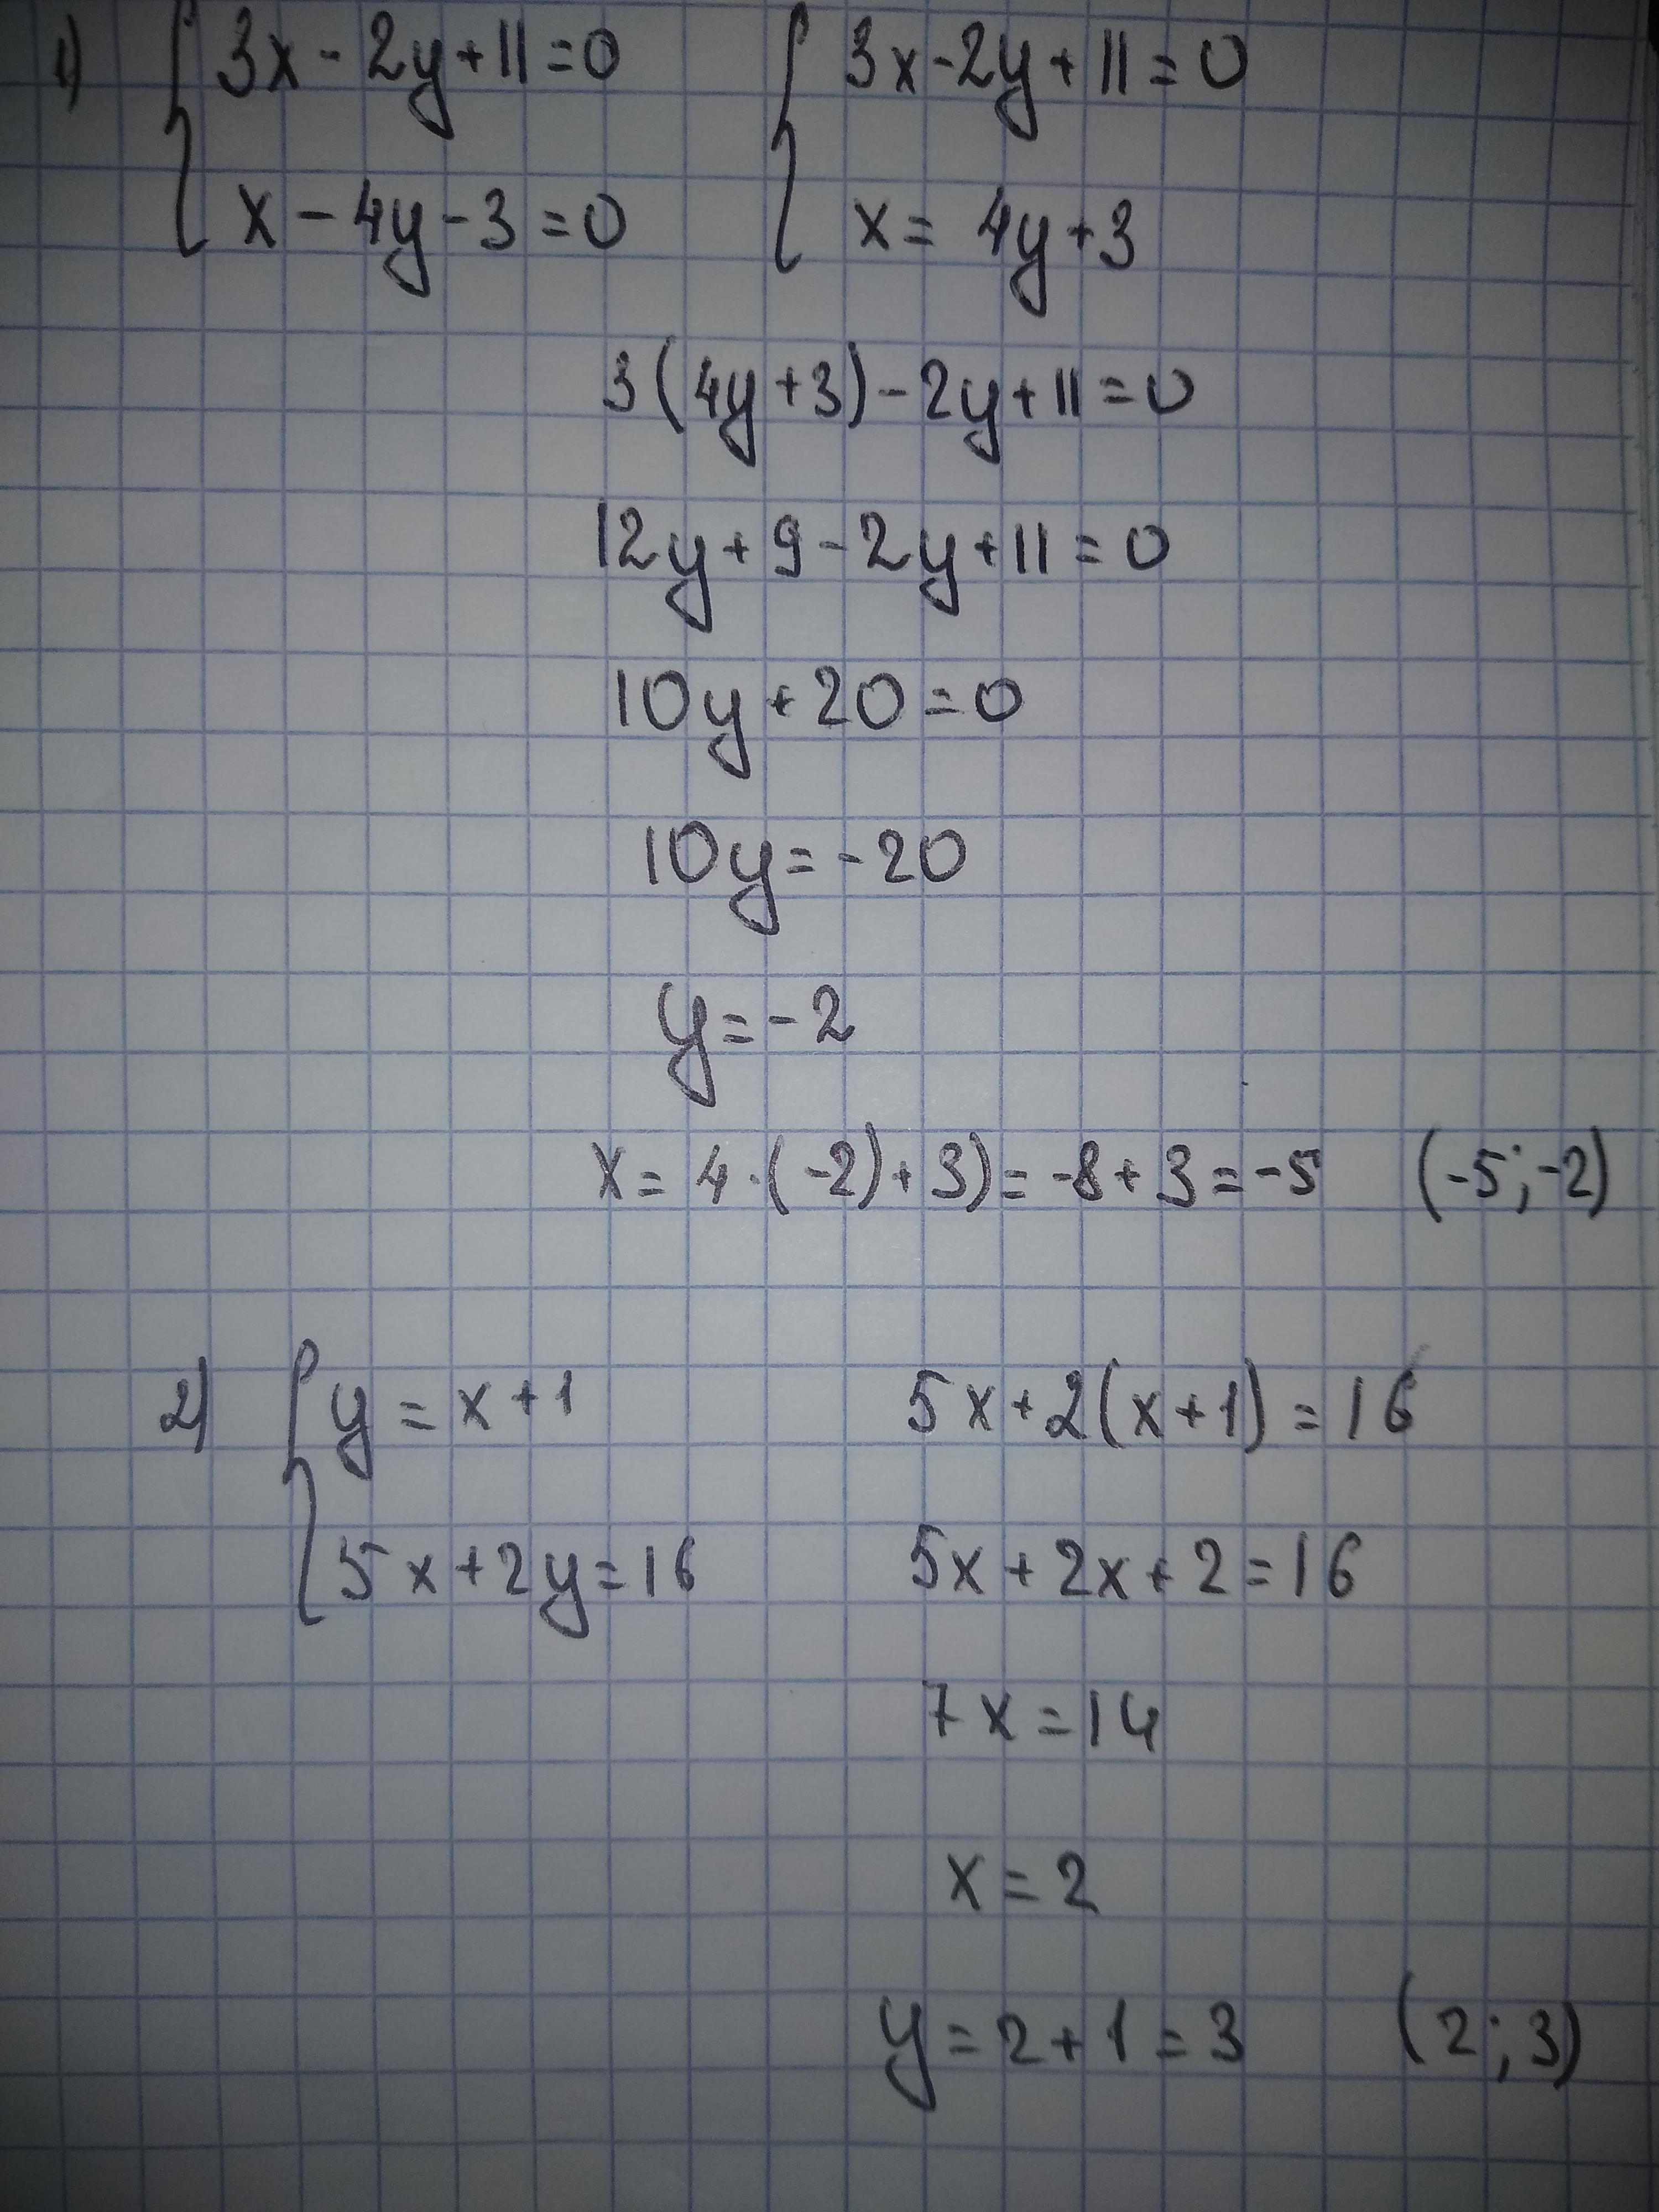 1) { 3x - 2y + 11 = 0 { 3x - 2y + 11 = 0
x - 4y - 3 = 0 x = 4y + 3
3(4y + 3) - 2y + 11 = 0
12y + 9 - 2y + 11 = 0
10y + 20 = 0
10y = -20
y = -2
x = 4·(-2) + 3) = -8 + 3 = -5 (-5; -2)
2) { y = x + 1 5x + 2(x + 1) = 16
5x + 2y = 16 5x + 2x + 2 = 16
7x = 14
x = 2
y = 2 + 1 = 3 (2; 3)